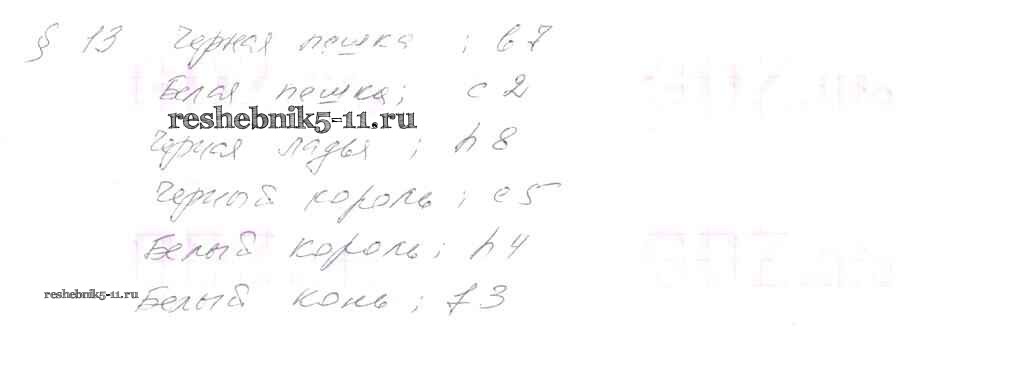 § 13 Черная пешка ; b7
Белая пешка; c2
reshebnik5-11.ru
Черная ладья ; h8
Черный король ; e5
Белый король; h4
reshebnik5-11.ru
Белый конь ; f3